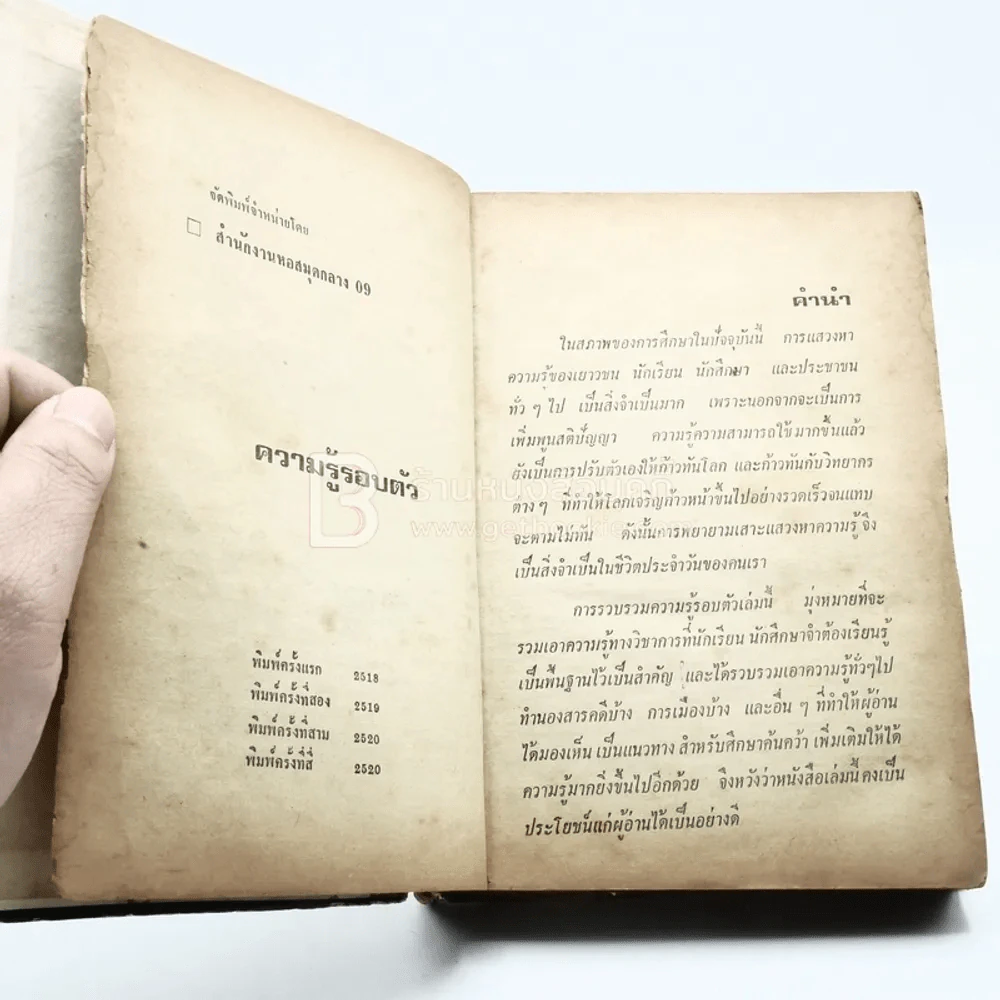 จัดพิมพ์จำหน่ายโดย
สำนักงานหอสมุดกลาง 09
ความรู้รอบตัว
พิมพ์ครั้งแรก 2518
พิมพ์ครั้งที่สอง 2519
พิมพ์ครั้งที่สาม 2520
พิมพ์ครั้งที่สี่ 2520
คำนำ
ในสภาพของการศึกษาในปัจจุบันนี้ การแสวงหา
ความรู้ของเยาวชน นักเรียน นักศึกษา และประชาชน
ทั่ว ๆ ไป เป็นสิ่งจำเป็นมาก เพราะนอกจากจะเป็นการ
เพิ่มพูนสติปัญญา ความรู้ความสามารถใช้มากขึ้นแล้ว
ยังเป็นการปรับตัวเองให้ก้าวทันโลก และก้าวทันกับวิทยากร
ต่าง ๆ ที่ทำให้โลกเจริญก้าวหน้าขึ้นไปอย่างรวดเร็วจนแทบ
จะตามไม่ทัน ดังนั้นการพยายามเสาะแสวงหาความรู้ จึง
เป็นสิ่งจำเป็นในชีวิตประจำวันของคนเรา
การรวบรวมความรู้รอบตัวเล่มนี้ มุ่งหมายที่จะ
รวมเอาความรู้ทางวิชาการที่นักเรียน นักศึกษาจำต้องเรียนรู้
เป็นพื้นฐานไว้เป็นสำคัญ และได้รวบรวมเอาความรู้ทั่วๆไป
ทำนองสารคดีบ้าง การเมืองบ้าง และอื่น ๆ ที่ทำให้ผู้อ่าน
ได้มองเห็น เป็นแนวทาง สำหรับศึกษาค้นคว้า เพิ่มเติมให้ได้
ความรู้มากยิ่งขึ้นไปอีกด้วย จึงหวังว่าหนังสือเล่มนี้ คงเป็น
ประโยชน์แก่ผู้อ่านได้เป็นอย่างดี